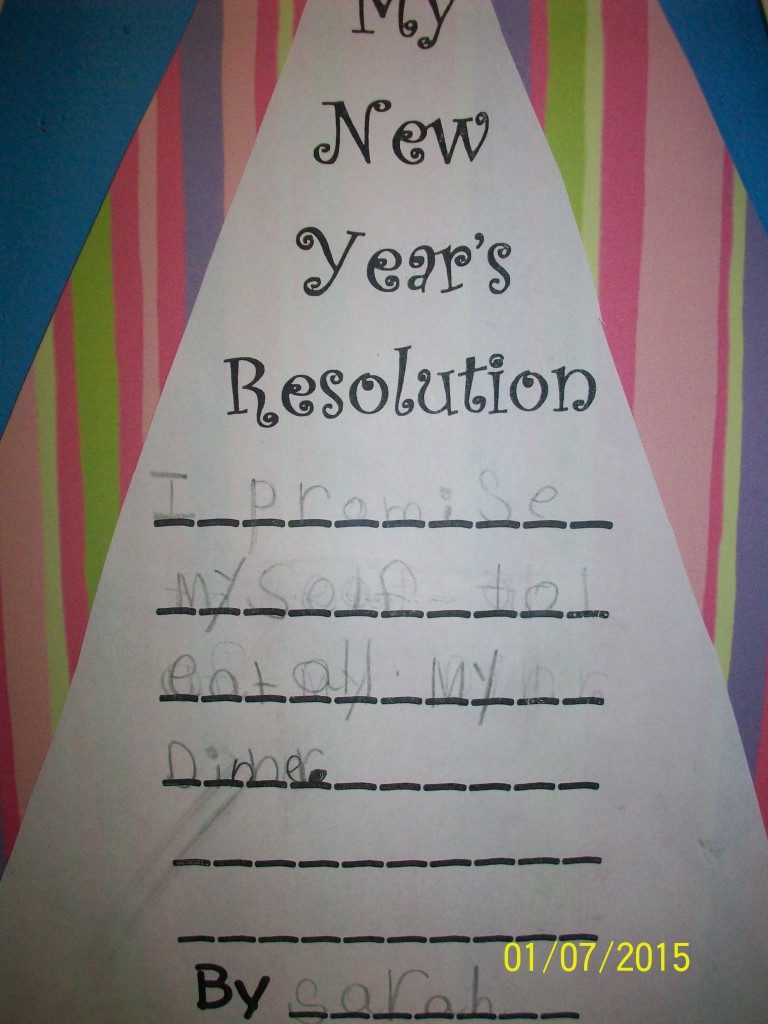 My
New
Year's
Resolution
I promise
myself to
eat all my
Dinner.
By sarah
01/07/2015